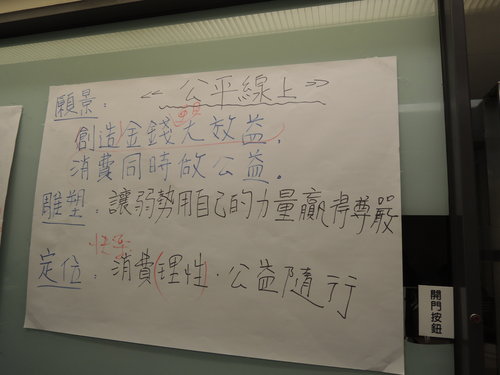 <<公平線上>>
願景:
創造金錢大效益.
消費同時做公益.
雕塑:讓弱勢用自己的力量贏得尊嚴
定位:消費(理性)·公益隨行
開門按鈕